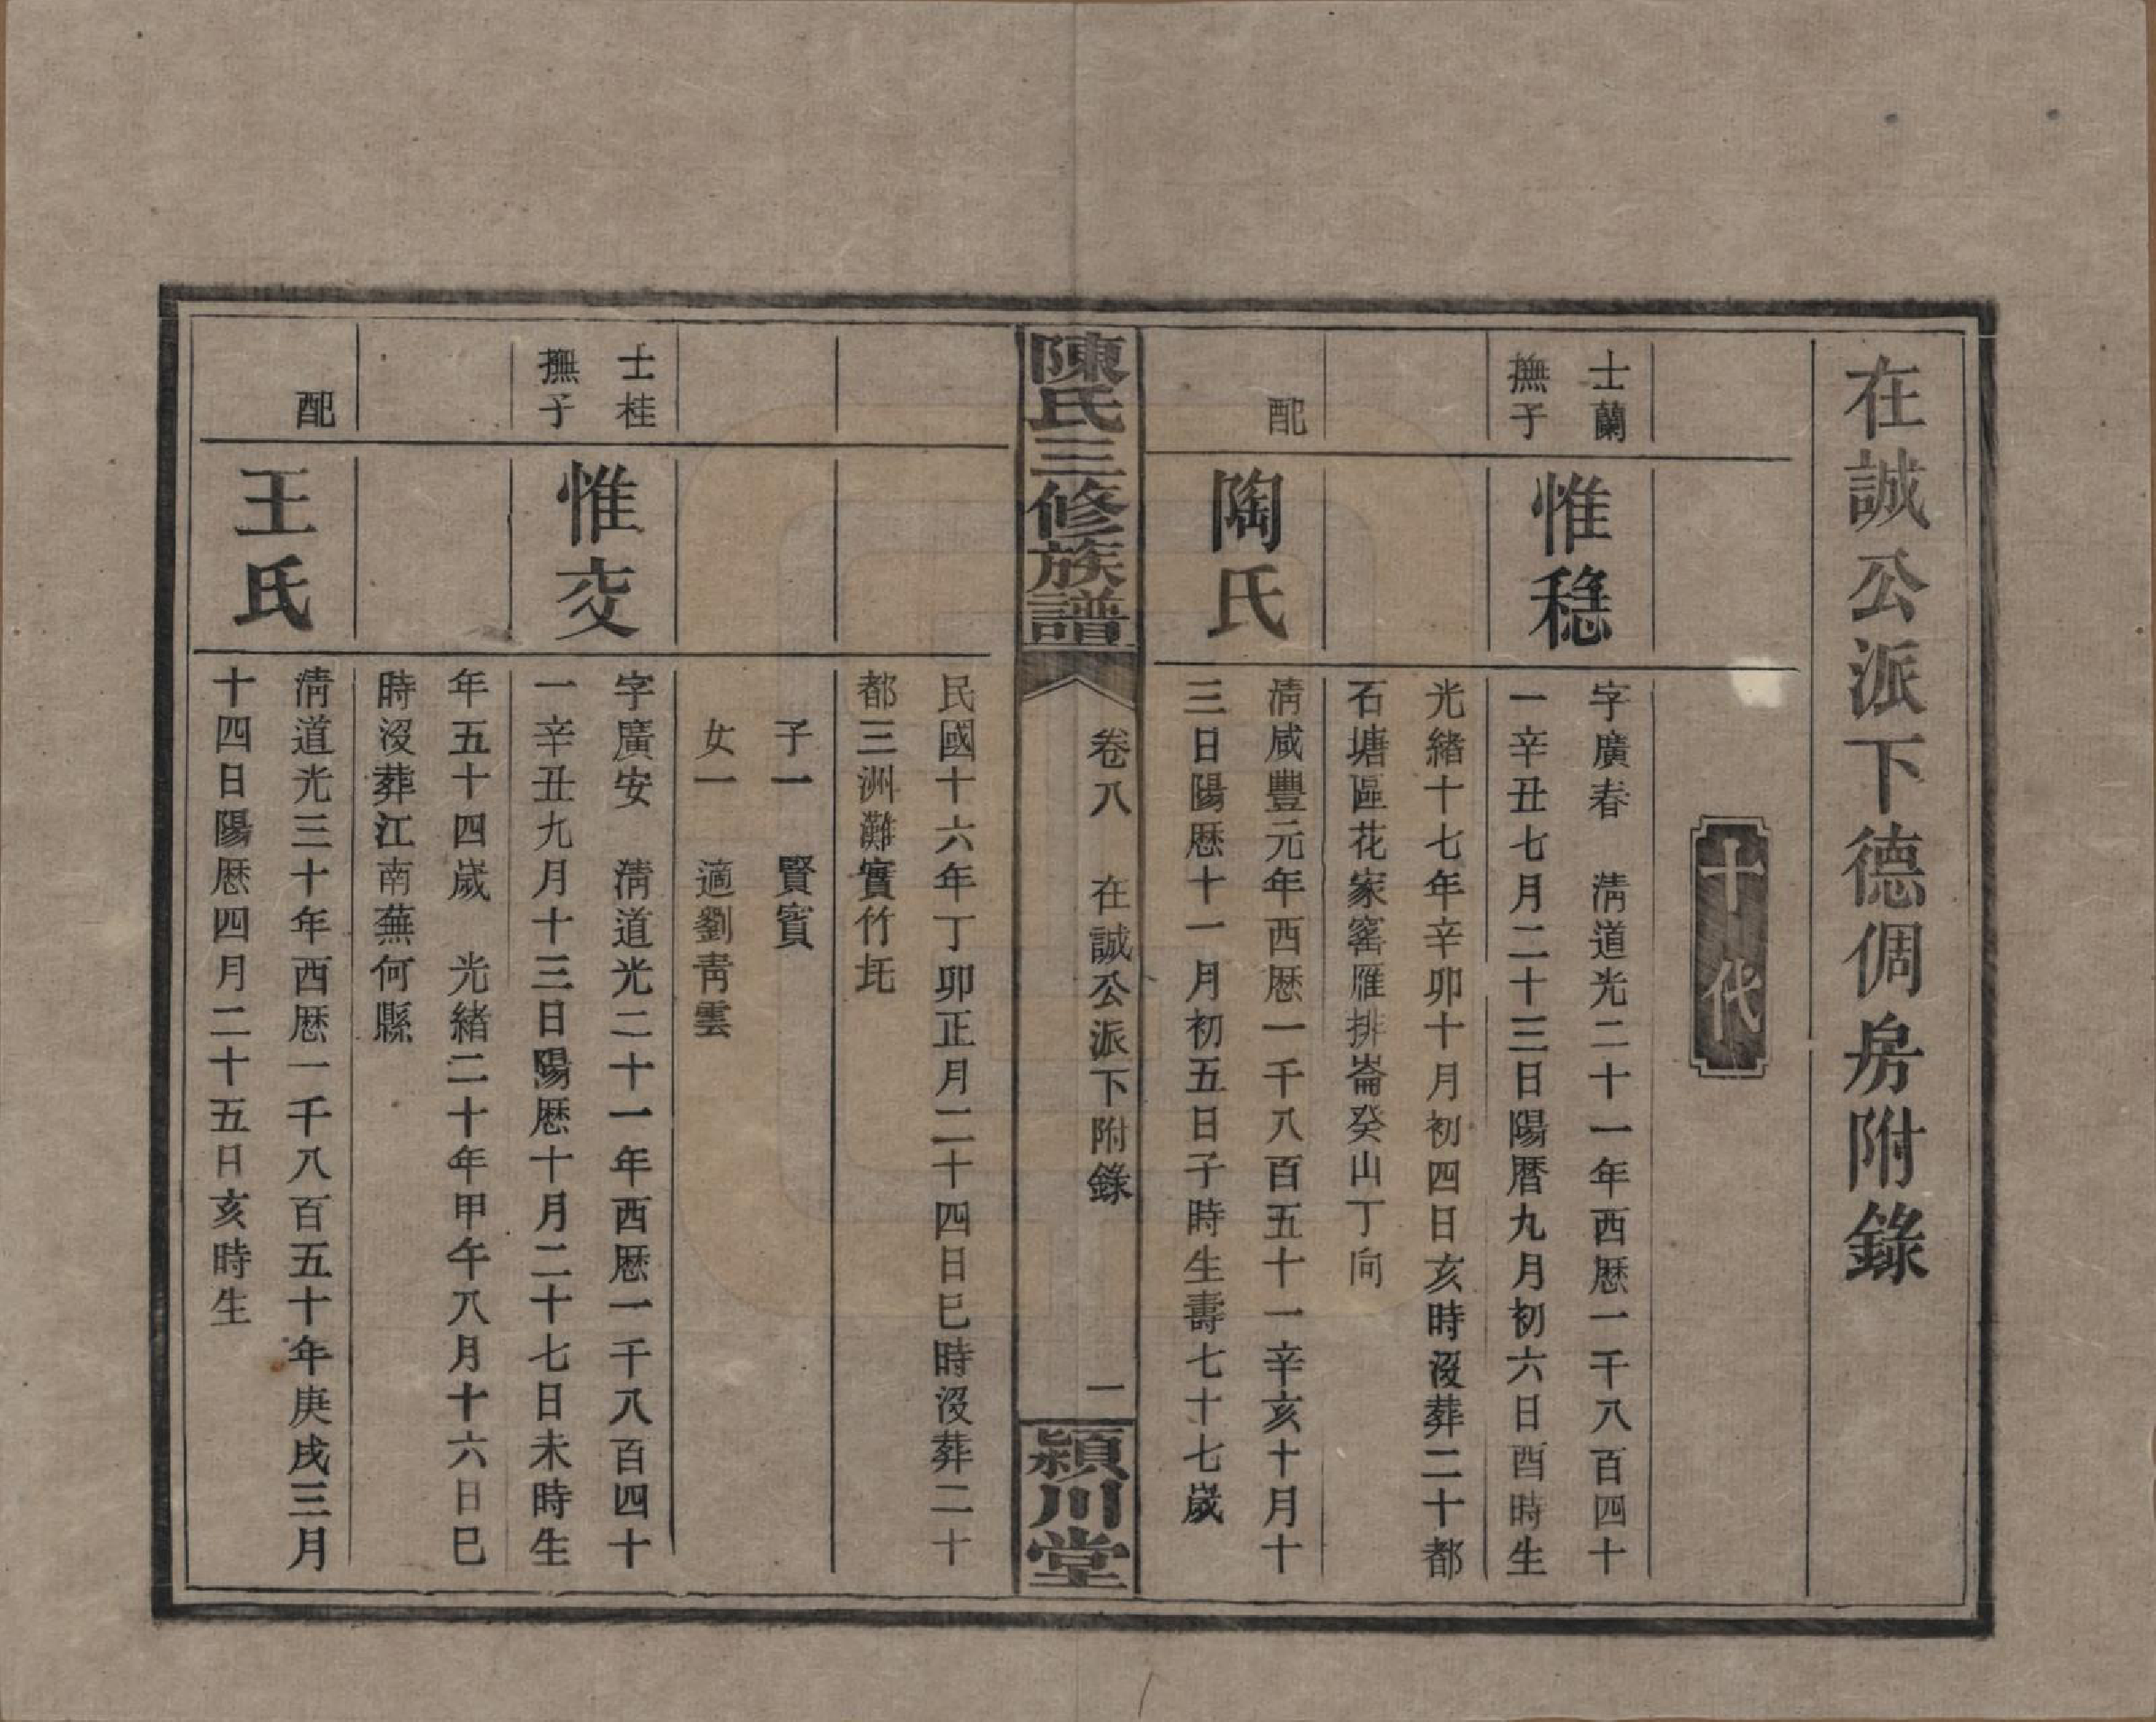 在誠公派下德倜房附錄
十代
士蘭
撫子
惟穩
字廣春　淸道光二十一年西歷一千八百四十
一辛丑七月二十三日陽曆九月初六日酉時生
光緒十七年辛卯十月初四日亥時沒葬二十都
石塘區花家窰雁排崙癸山丁向
配
陶氏
淸咸豐元年西歷一千八百五十一辛亥十月十
三日陽歷十一月初五日子時生壽七十七歲
陳氏三修族譜
卷八　在誠公派下附錄
一
潁川堂
民國十六年丁卯正月二十四日巳時沒葬二十
都三洲灘實竹圫
子一　賢賓
女一　適劉靑雲
士桂
撫子
惟交
字廣安　淸道光二十一年西歷一千八百四十
一辛丑九月十三日陽歷十月二十七日未時生
年五十四歲　光緒二十年甲午八月十六日巳
時沒葬江南蕪何縣
配
王氏
淸道光三十年西歷一千八百五十年庚戌三月
十四日陽歷四月二十五日亥時生